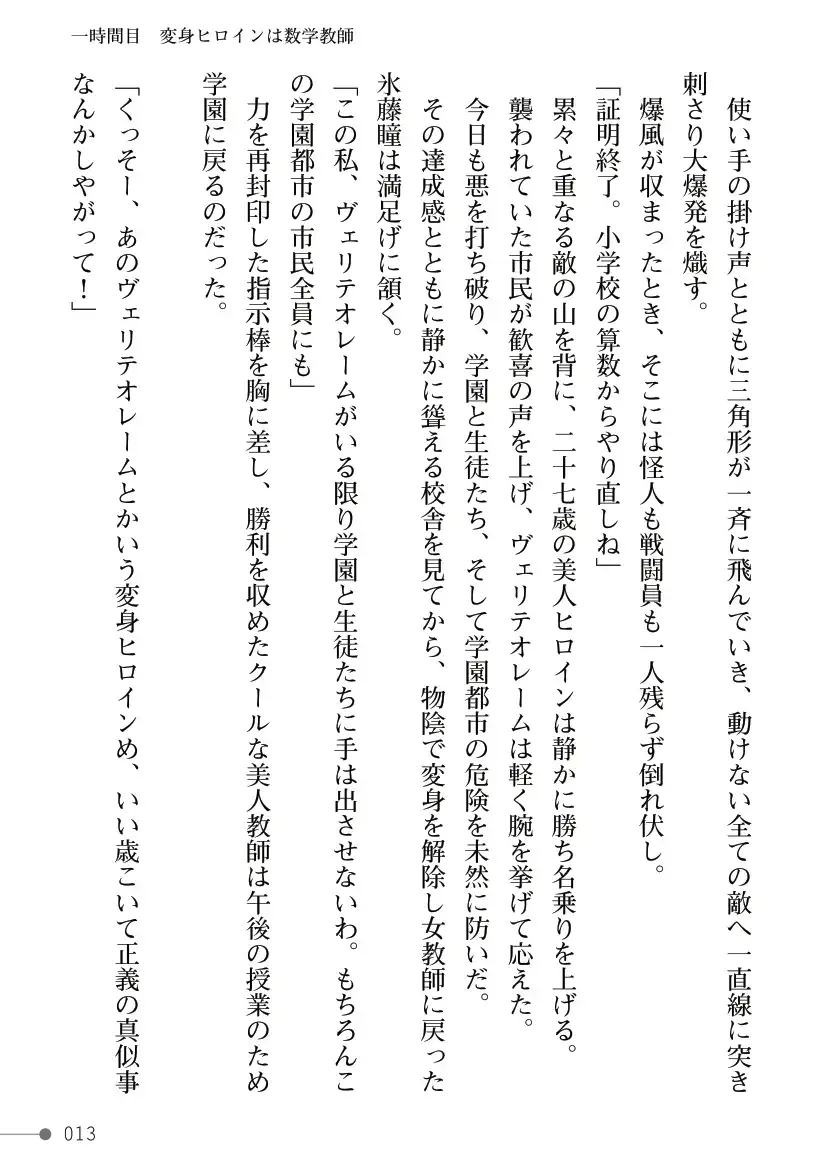 一時間目　変身ヒロインは数学教師
　使い手の掛け声とともに三角形が一斉に飛んでいき、動けない全ての敵へ一直線に突き
刺さり大爆発を熾す。
　爆風が収まったとき、そこには怪人も戦闘員も一人残らず倒れ伏し。
「証明終了。小学校の算数からやり直しね」
　累々と重なる敵の山を背に、二十七歳の美人ヒロインは静かに勝ち名乗りを上げる。
　襲われていた市民が歓喜の声を上げ、ヴェリテオレームは軽く腕を挙げて応えた。
　今日も悪を打ち破り、学園と生徒たち、そして学園都市の危険を未然に防いだ。
　その達成感とともに静かに聳える校舎を見てから、物陰で変身を解除し女教師に戻った
氷藤瞳は満足げに頷く。
「この私、ヴェリテオレームがいる限り学園と生徒たちに手は出させないわ。もちろんこ
の学園都市の市民全員にも」
　力を再封印した指示棒を胸に差し、勝利を収めたクールな美人教師は午後の授業のため
学園に戻るのだった。
「くっそー、あのヴェリテオレームとかいう変身ヒロインめ、いい歳こいて正義の真似事
なんかしやがって！」
013